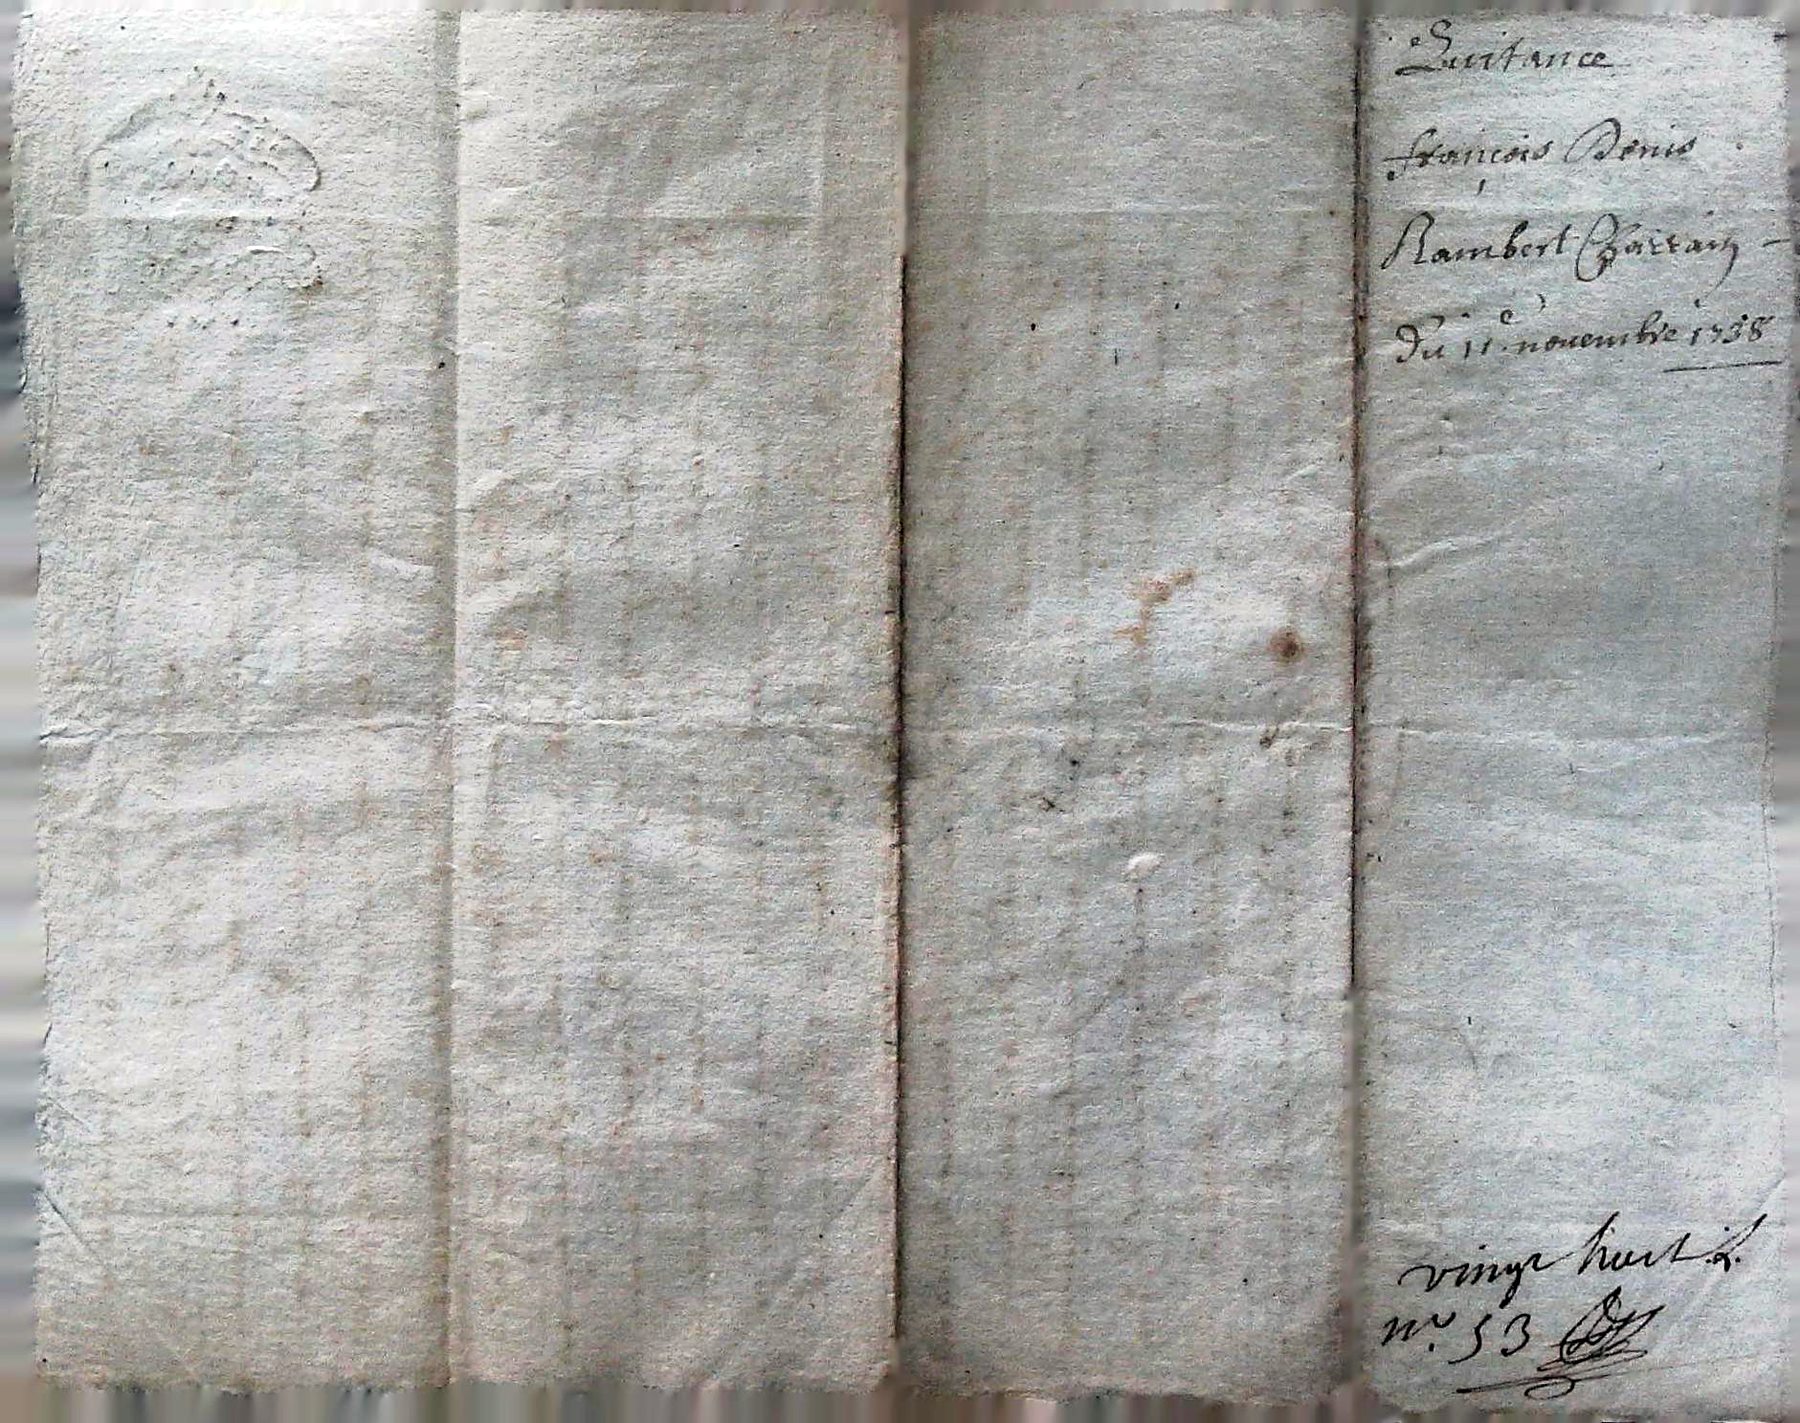 Quitance
françois Denis
Rambert Charrain
du 11e. novembre 1738
vingt huit L.
n.º 53